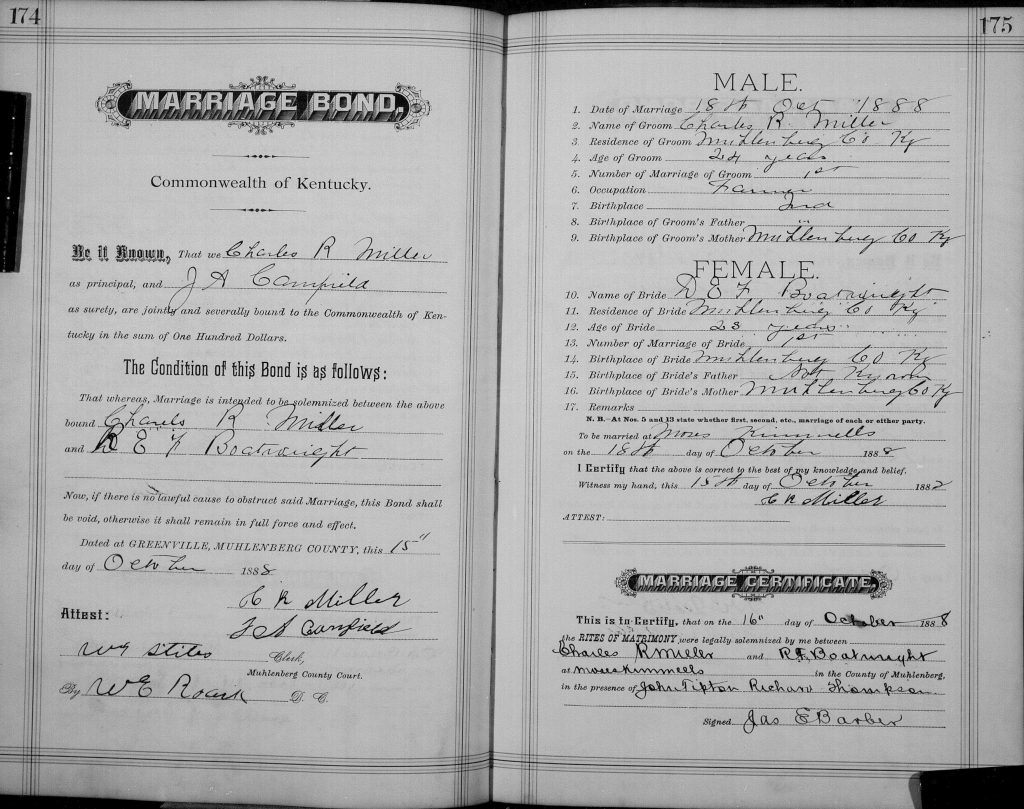 174
MARRIAGE BOND.
Commonwealth of Kentucky.
Be it Known, That we Charles R Miller
as principal, and J A Camfield
as surety, are jointly and severally bound to the Commonwealth of Ken-
tucky in the sum of One Hundred Dollars.
The Condition of this Bond is as follows:
That whereas, Marriage is intended to be solemnized between the above
bound Charles R Miller
and R E F Boatwright
Now, if there is no lawful cause to obstruct said Marriage, this Bond shall
be void, otherwise it shall remain in full force and effect.
Dated at GREENVILLE, MUHLENBERG COUNTY, this 15"
day of October 1888
C R Miller
Attest: J A Camfield
W Y Stites Clerk,
Muhlenberg County Court.
By W E Roark D. C.
175
MALE.
1. Date of Marriage 18th Oct 1888
2. Name of Groom Charles R. Miller
3. Residence of Groom Muhlenberg Co Ky
4. Age of Groom 24 years
5. Number of Marriage of Groom 1st
6. Occupation Farmer
7. Birthplace Ind
8. Birthplace of Groom's Father "
9. Birthplace of Groom's Mother Muhlenberg Co Ky
FEMALE.
10. Name of Bride R E F Boatwright
11. Residence of Bride Muhlenberg Co Ky
12. Age of Bride 23 years
13. Number of Marriage of Bride 1st
14. Birthplace of Bride Muhlenberg Co Ky
15. Birthplace of Bride's Father Not Known
16. Birthplace of Bride's Mother Muhlenberg Co Ky
17. Remarks
N. B.—At Nos. 5 and 13 state whether first, second, etc., marriage of each or either party.
To be married at Moses Kimmells
on the 18th day of October 1888
I Certify that the above is correct to the best of my knowledge and belief.
Witness my hand, this 15th day of October 1882
C R Miller
ATTEST:
MARRIAGE CERTIFICATE.
This is to Certify, that on the 16" day of October 1888
the RITES OF MATRIMONY were legally solemnized by me between
Charles R Miller and R F Boatwright
at Moses Kimmells in the County of Muhlenberg,
in the presence of John Tipton Richard Thompson
Signed Jas E Barber